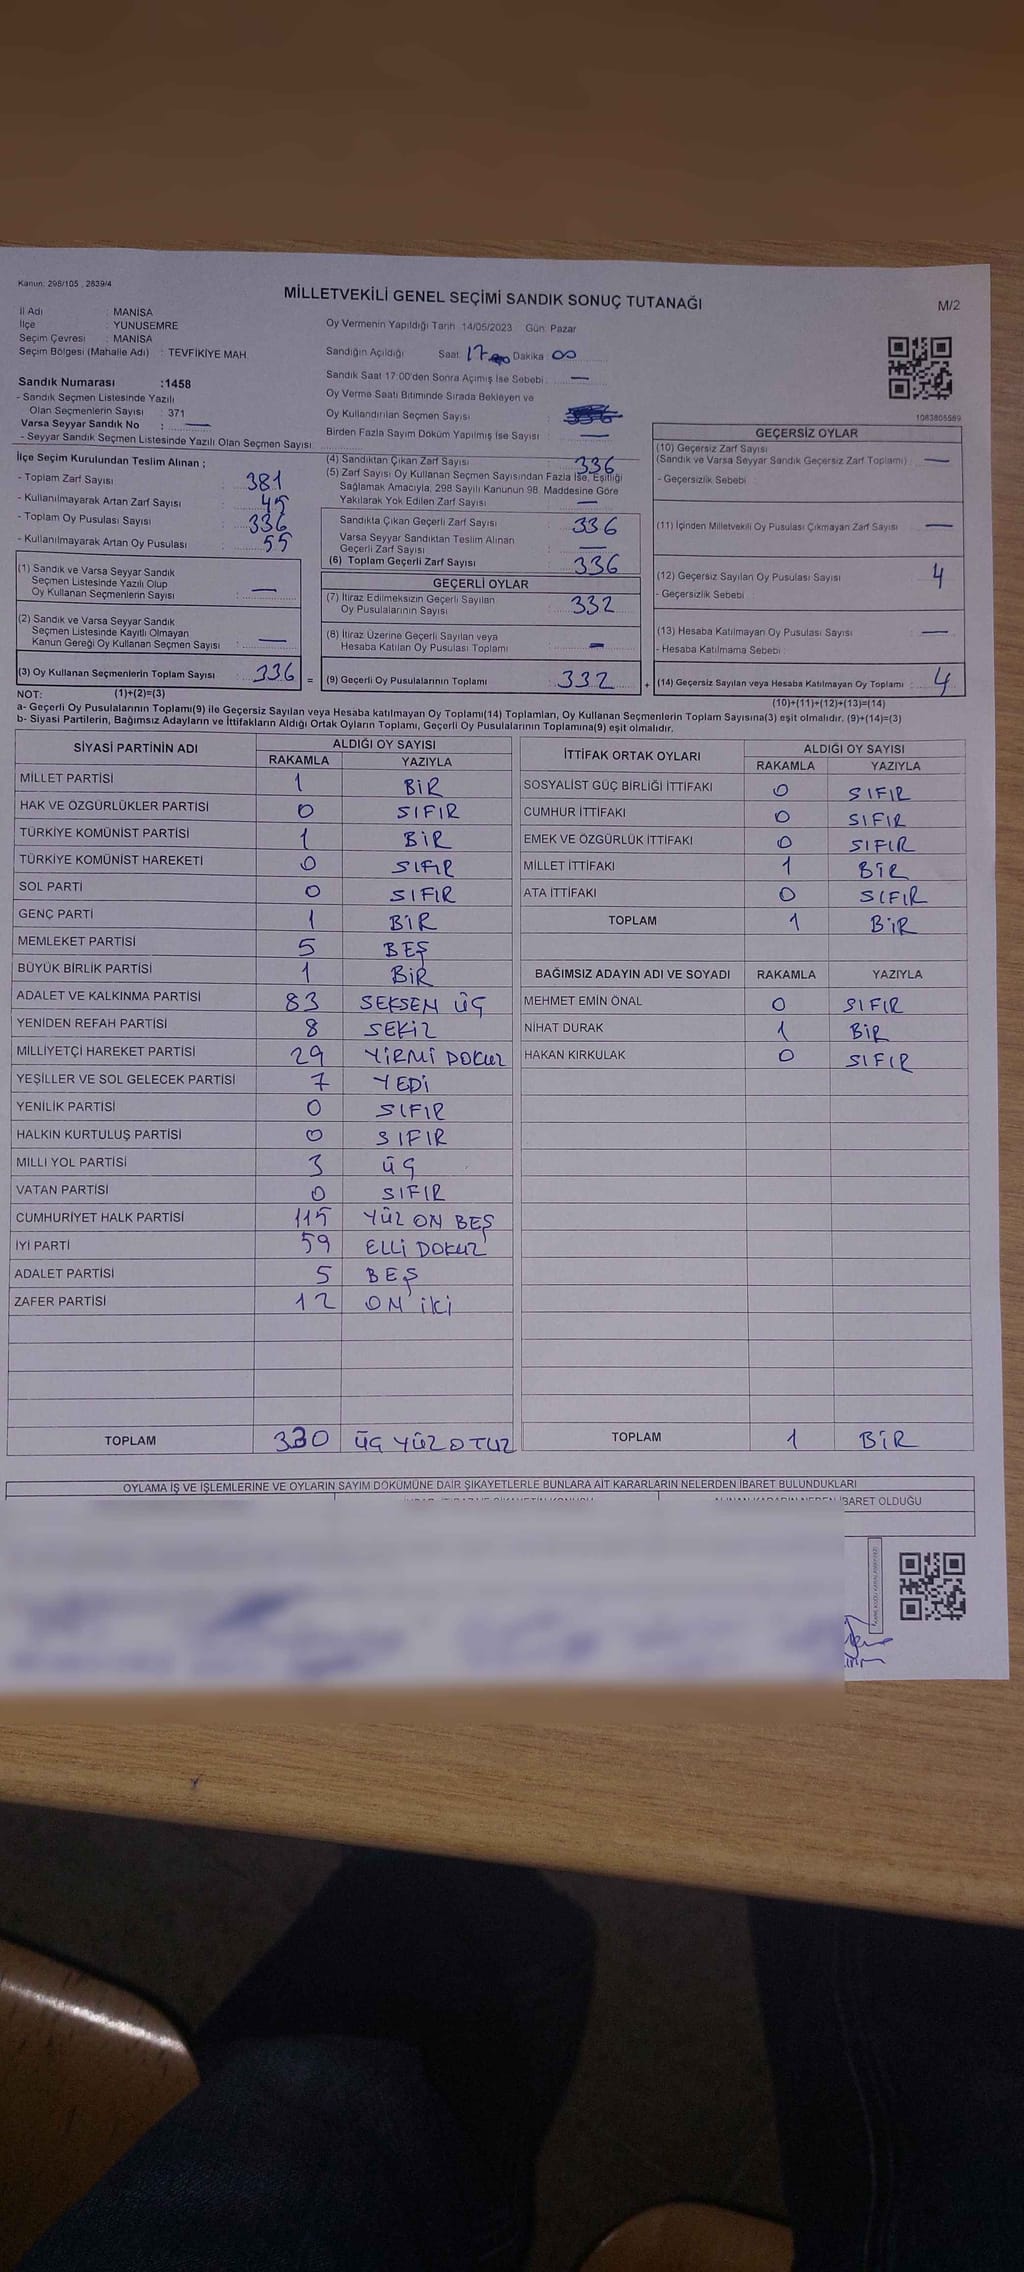 Kanun: 298/105 , 2839/4
MİLLETVEKİLİ GENEL SEÇİMİ SANDIK SONUÇ TUTANAĞI
M/2
İl Adı : MANİSA
İlçe : YUNUSEMRE
Seçim Çevresi : MANİSA
Seçim Bölgesi (Mahalle Adı) : TEVFİKİYE MAH.
Sandık Numarası :1458
- Sandık Seçmen Listesinde Yazılı
Olan Seçmenlerin Sayısı : 371
Varsa Seyyar Sandık No : —
- Seyyar Sandık Seçmen Listesinde Yazılı Olan Seçmen Sayısı:
Oy Vermenin Yapıldığı Tarih 14/05/2023 Gün: Pazar
Sandığın Açıldığı Saat: 17 Dakika 00
Sandık Saat 17:00'den Sonra Açımış İse Sebebi: —
Oy Verme Saati Bitiminde Sırada Bekleyen ve
Oy Kullandırılan Seçmen Sayısı :
Birden Fazla Sayım Döküm Yapılmış İse Sayısı : —
1083805569
İlçe Seçim Kurulundan Teslim Alınan ;
- Toplam Zarf Sayısı : 381
- Kullanılmayarak Artan Zarf Sayısı : 45
- Toplam Oy Pusulası Sayısı : 336
- Kullanılmayarak Artan Oy Pusulası : 55
(1) Sandık ve Varsa Seyyar Sandık
Seçmen Listesinde Yazılı Olup
Oy Kullanan Seçmenlerin Sayısı : —
(2) Sandık ve Varsa Seyyar Sandık
Seçmen Listesinde Kayıtlı Olmayan
Kanun Gereği Oy Kullanan Seçmen Sayısı : —
(3) Oy Kullanan Seçmenlerin Toplam Sayısı : 336 =
(4) Sandıktan Çıkan Zarf Sayısı : 336
(5) Zarf Sayısı Oy Kullanan Seçmen Sayısından Fazla İse, Eşitliği
Sağlamak Amacıyla, 298 Sayılı Kanunun 98. Maddesine Göre
Yakılarak Yok Edilen Zarf Sayısı : —
Sandıkta Çıkan Geçerli Zarf Sayısı : 336
Varsa Seyyar Sandıktan Teslim Alınan
Geçerli Zarf Sayısı : —
(6) Toplam Geçerli Zarf Sayısı : 336
GEÇERLİ OYLAR
(7) İtiraz Edilmeksizin Geçerli Sayılan
Oy Pusulalarının Sayısı : 332
(8) İtiraz Üzerine Geçerli Sayılan veya
Hesaba Katılan Oy Pusulası Toplamı : —
(9) Geçerli Oy Pusulalarının Toplamı : 332 +
GEÇERSİZ OYLAR
(10) Geçersiz Zarf Sayısı
(Sandık ve Varsa Seyyar Sandık Geçersiz Zarf Toplamı) : —
- Geçersizlik Sebebi :
(11) İçinden Milletvekili Oy Pusulası Çıkmayan Zarf Sayısı : —
(12) Geçersiz Sayılan Oy Pusulası Sayısı : 4
- Geçersizlik Sebebi :
(13) Hesaba Katılmayan Oy Pusulası Sayısı : —
- Hesaba Katılmama Sebebi :
(14) Geçersiz Sayılan veya Hesaba Katılmayan Oy Toplamı : 4
NOT: (1)+(2)=(3) (10)+(11)+(12)+(13)=(14)
a- Geçerli Oy Pusulalarının Toplamı(9) ile Geçersiz Sayılan veya Hesaba katılmayan Oy Toplamı(14) Toplamları, Oy Kullanan Seçmenlerin Toplam Sayısına(3) eşit olmalıdır. (9)+(14)=(3)
b- Siyasi Partilerin, Bağımsız Adayların ve İttifakların Aldığı Ortak Oyların Toplamı, Geçerli Oy Pusulalarının Toplamına(9) eşit olmalıdır.
SİYASİ PARTİNİN ADI ALDIĞI OY SAYISI
RAKAMLA YAZIYLA
MİLLET PARTİSİ 1 BİR
HAK VE ÖZGÜRLÜKLER PARTİSİ 0 SIFIR
TÜRKİYE KOMÜNİST PARTİSİ 1 BİR
TÜRKİYE KOMÜNİST HAREKETİ 0 SIFIR
SOL PARTİ 0 SIFIR
GENÇ PARTİ 1 BİR
MEMLEKET PARTİSİ 5 BEŞ
BÜYÜK BİRLİK PARTİSİ 1 BİR
ADALET VE KALKINMA PARTİSİ 83 SEKSEN ÜÇ
YENİDEN REFAH PARTİSİ 8 SEKİZ
MİLLİYETÇİ HAREKET PARTİSİ 29 YİRMİ DOKUZ
YEŞİLLER VE SOL GELECEK PARTİSİ 7 YEDİ
YENİLİK PARTİSİ 0 SIFIR
HALKIN KURTULUŞ PARTİSİ 0 SIFIR
MİLLİ YOL PARTİSİ 3 ÜÇ
VATAN PARTİSİ 0 SIFIR
CUMHURİYET HALK PARTİSİ 115 YÜZ ON BEŞ
İYİ PARTİ 59 ELLİ DOKUZ
ADALET PARTİSİ 5 BEŞ
ZAFER PARTİSİ 12 ON İKİ
TOPLAM 330 ÜÇ YÜZ OTUZ
İTTİFAK ORTAK OYLARI ALDIĞI OY SAYISI
RAKAMLA YAZIYLA
SOSYALİST GÜÇ BİRLİĞİ İTTİFAKI 0 SIFIR
CUMHUR İTTİFAKI 0 SIFIR
EMEK VE ÖZGÜRLÜK İTTİFAKI 0 SIFIR
MİLLET İTTİFAKI 1 BİR
ATA İTTİFAKI 0 SIFIR
TOPLAM 1 BİR
BAĞIMSIZ ADAYIN ADI VE SOYADI RAKAMLA YAZIYLA
MEHMET EMİN ÖNAL 0 SIFIR
NİHAT DURAK 1 BİR
HAKAN KIRKULAK 0 SIFIR
TOPLAM 1 BİR
OYLAMA İŞ VE İŞLEMLERİNE VE OYLARIN SAYIM DÖKÜMÜNE DAİR ŞİKAYETLERLE BUNLARA AİT KARARLARIN NELERDEN İBARET BULUNDUKLARI
İBARET OLDUĞU